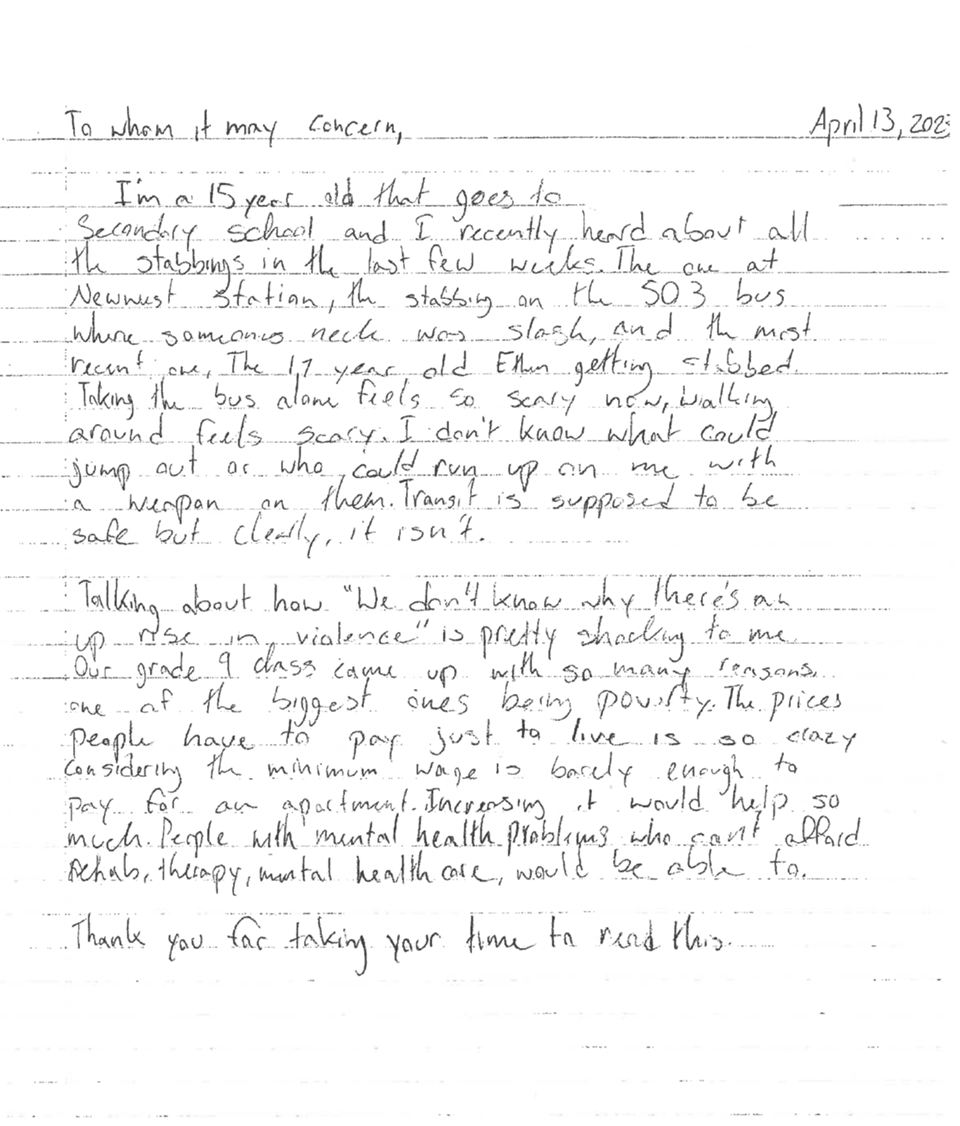 To whom it may concern, April 13, 202
I'm a 15 year old that goes to
Secondary school and I recently heard about all
the stabbings in the last few weeks. The one at
Newwest Station, the stabbing on the 503 bus
where someones neck was slash, and the most
recent one, The 17 year old Ethan getting stabbed.
Taking the bus alone feels so scary now, walking
around feels scary. I don't know what could
jump out or who could run up on me with
a weapon on them. Transit is supposed to be
safe but clearly, it isn't.
Talking about how "We don't know why there's an
up rise in violence" is pretty shocking to me.
Our grade 9 class came up with so many reasons,
one of the biggest ones being poverty. The prices
people have to pay just to live is so crazy
considering the minimum wage is barely enough to
pay for an apartment. Increasing it would help so
much. People with mental health problems who can't afford
rehab, therapy, mental health care, would be able to.
Thank you for taking your time to read this.